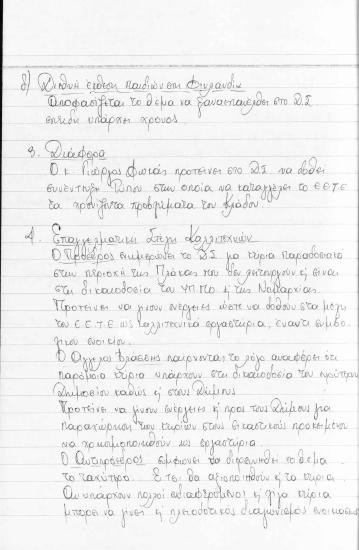 δ) Διεθνή έκθεση παιδιών στη Φινλανδία
Αποφασίζεται το θέμα να ξαναεπανέλθει στο Δ.Σ.
επειδή υπάρχει χρόνος.
3. Διάφορα
Ο κ. Γιώργος Φωτιάς προτείνει στο Δ.Σ. να δοθεί
συνέντευξη Τύπου στην οποία να καταγγέλει το Ε.Ε.Τ.Ε
τα χρονίζοντα προβλήματα του Κλάδου.
4. Επαγγελματική Στέγη Καλλιτεχνών
Ο Πρόεδρος ενημερώνει το Δ.Σ. με κτίρια παραδοσιακά
στην περιοχή της Πλάκας που δεν λειτουργούν ή είναι
στη δικαιοδοσία του ΥΠΠΟ ή της Νομαρχίας.
Προτείνει να γίνουν ενέργειες ώστε να δοθούν στα μέλη
του Ε.Ε.Τ.Ε ως καλλιτεχνικά εργαστήρια, έναντι συμβο-
λικού ενοικίου.
Ο Άγγελος Βλάσσης παίρνοντας το λόγο αναφέρει ότι
παρόμοια κτίρια υπάρχουν στη δικαιοδοσία του ευρύτερου
Δημοσίου καθώς ή στους Δήμους.
Προτείνει να γίνουν ενέργειες ή προς τους Δήμους για
παραχώρηση των κτιρίων στους εικαστικούς προκειμένου
να χρησιμοποιηθούν ως εργαστήρια.
Ο Αντιπρόεδρος σημειώνει να διερευνηθεί το θέμα
το ταχύτερο. Έτσι θα αξιοποιηθούν ή τα κτίρια.
Αν υπάρχουν πολλοί ενδιαφερόμενοι ή λίγα κτίρια
μπορεί να γίνει ή πλειοδοτικός διαγωνισμός ενοικίασης